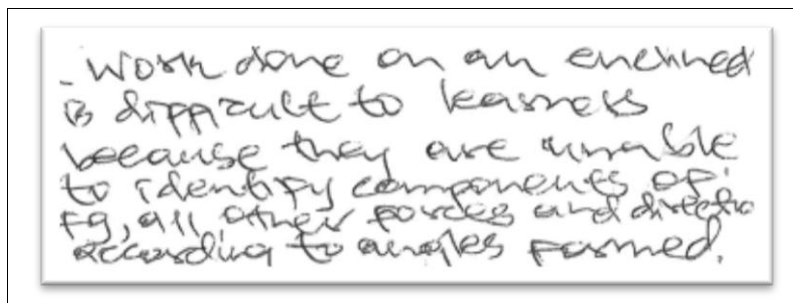 - Work done on an enclined
is difficult to learners
because they are unable
to identify components of
Fg, all other forces and directio
according to angles formed.